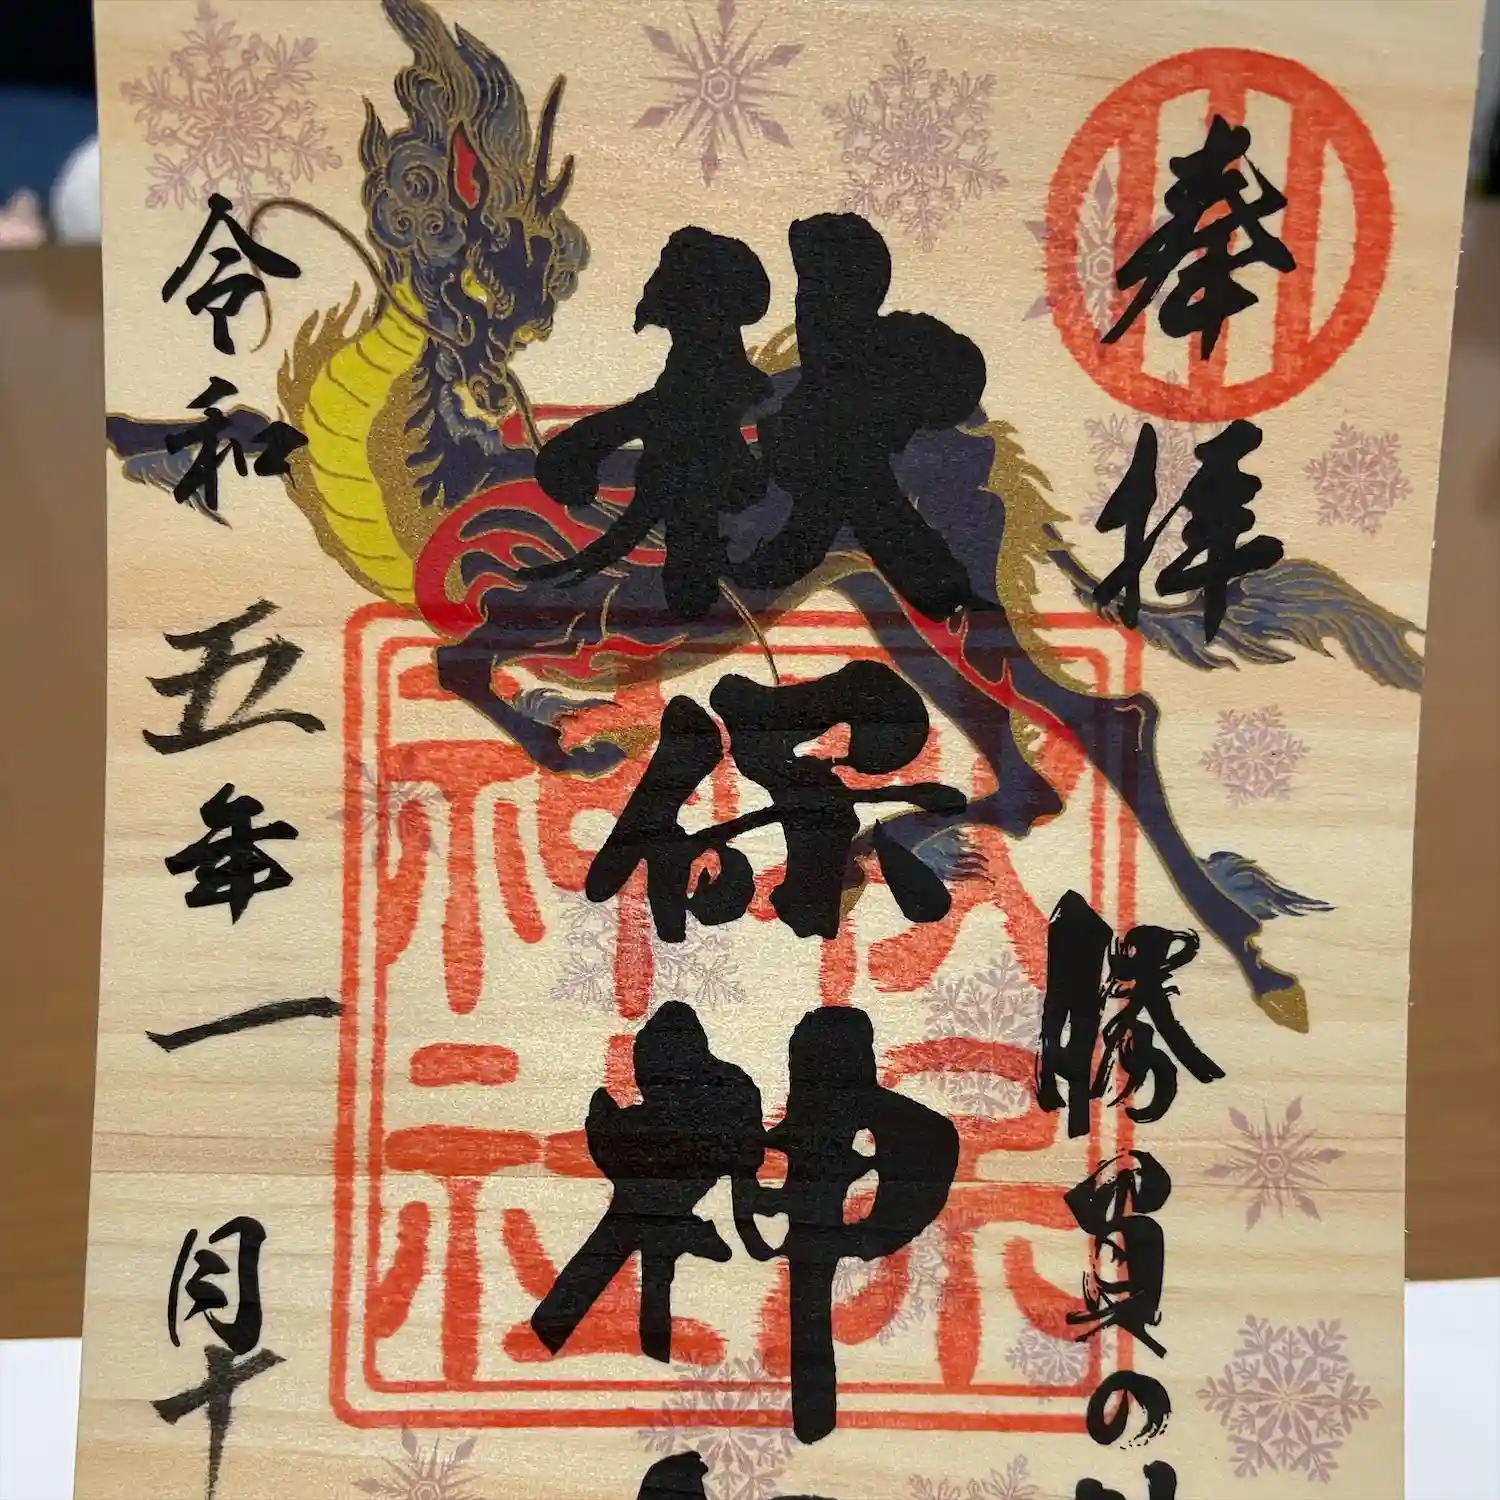 奉拝
勝負の
秋保神
令和五年一月十
秋保神社